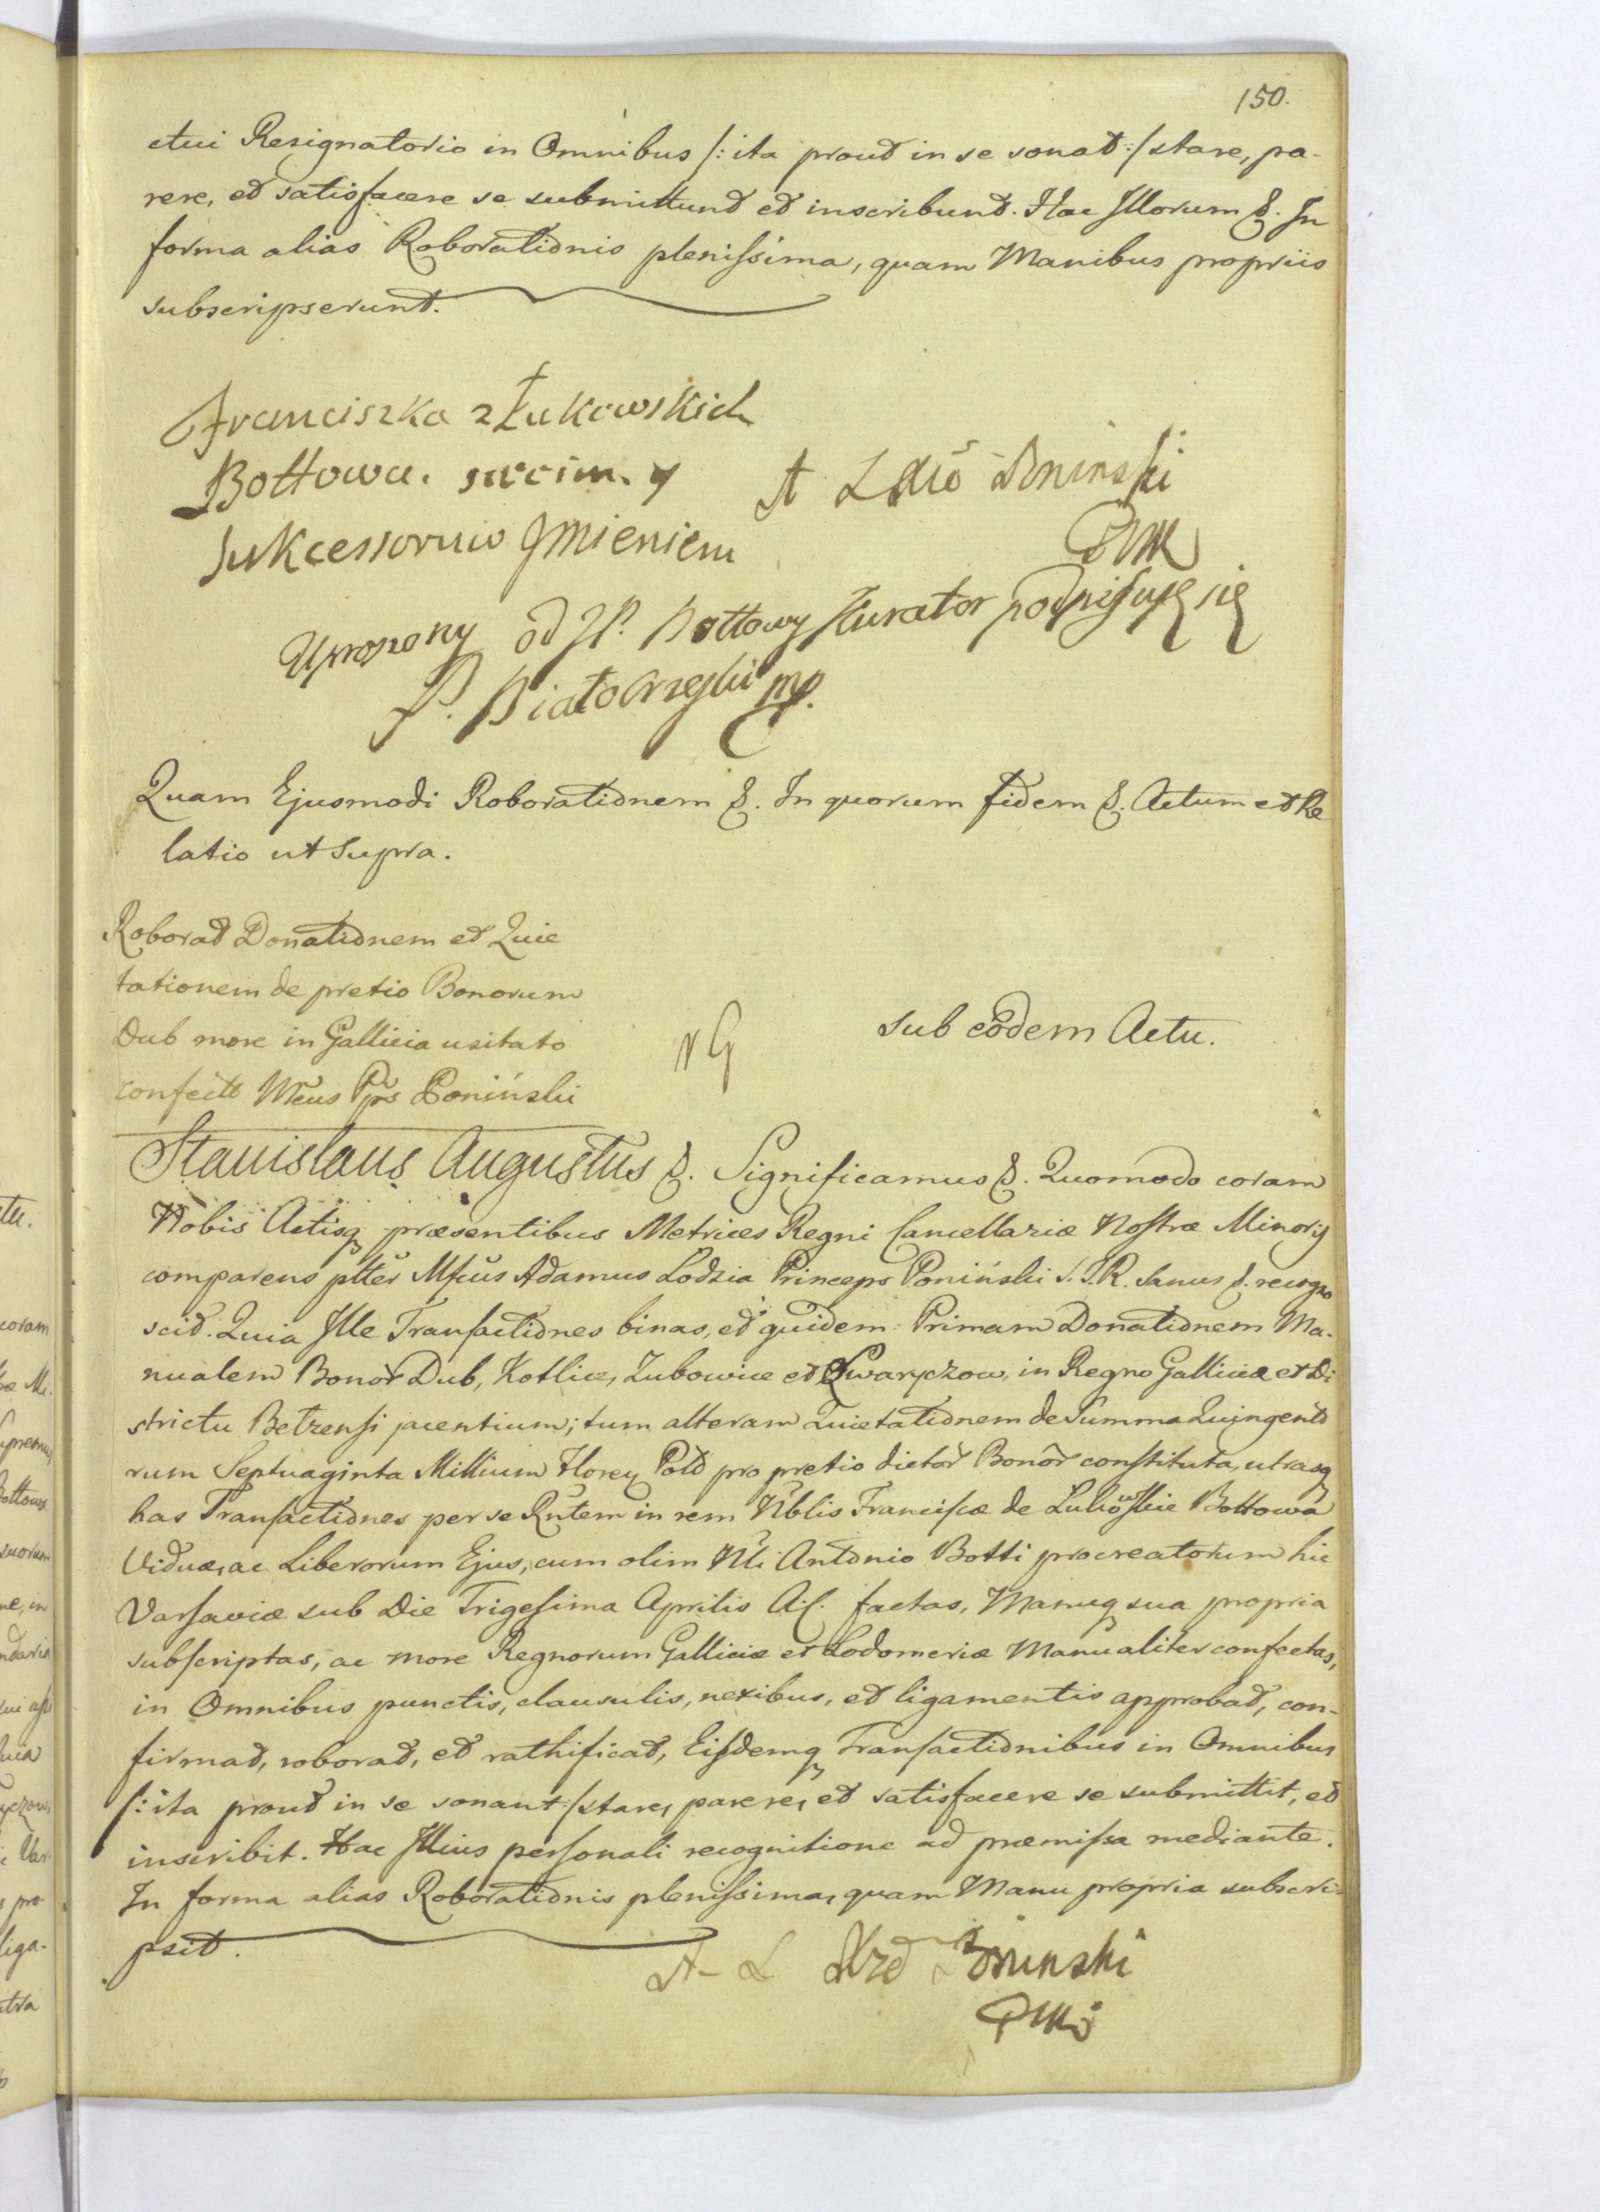 150.
ctui Resignatorio in Omnibus /: ita prout in se sonat :/ stare, pa-
rere, et satisfacere se submittunt et inscribunt. Hac Illorum &. In
forma alias Roborationis plenissima, quam Manibus propriis
subscripserunt.
Franciszka z Łukowskich
Bottowa. swoim. y
Sukcessoruw Jmieniem
A Poninski
Uproszony od JP. Bottowy Kurator podpisuję się
P. Białobrzeski mp.
Quam Ejusmodi Roborationem &. In quorum fidem &. Actum et Re
latio ut Supra.
Roborat Donationem et Quie
tationem de pretio Bonorum
Dub more in Gallicia usitato
confect Mcus Pps Poniński
NG
sub eodem Actu.
Stanislaus Augustus &. Significamus &. Quomodo coram
Nobis Actisq præsentibus Metrices Regni Cancellariæ Nostræ Minoris
comparens pltēr Mfcūs Adamus Lodzia Princeps Poniński S. J. R. Sanus &. recogno
scit. Quia Ille Transactiones binas, et quidem: Primam Donationem Ma-
nualem Bonor Dub, Kotlice, Zubowice et Swaryczow, in Regno Galliciæ et Di
strictu Betzensi jacentium; tum alteram Quietationem de Summa Quingento
rum Septuaginta Millium Floren Pold pro pretio dictor Bonor constituta, utrasq
has Transactiones per se Rntem in rem Nblis Franciscæ de Lukowskie Bottowa
Viduæ, ac Liberorum Ejus, cum olim Nli Antonio Botti procreatorum hic
Varsaviæ sub Die Trigesima Aprilis A. C. factas, Manuq sua propria
subscriptas, ac more Regnorum Galliciæ et Lodomeriæ Manualiter confectas,
in Omnibus punctis, clausulis, nexibus, et ligamentis approbat, con-
firmat, roborat, et rathificat, Eisdemq Transactionibus in Omnibus
/: ita prout in se sonant :/ stare, parere, et satisfacere se submittit, et
inscribit. Hac Illius personali recognitione ad præmissa mediante.
In forma alias Roborationis plenissima, quam Manu propria subscri-
psit.
A - L Poninski